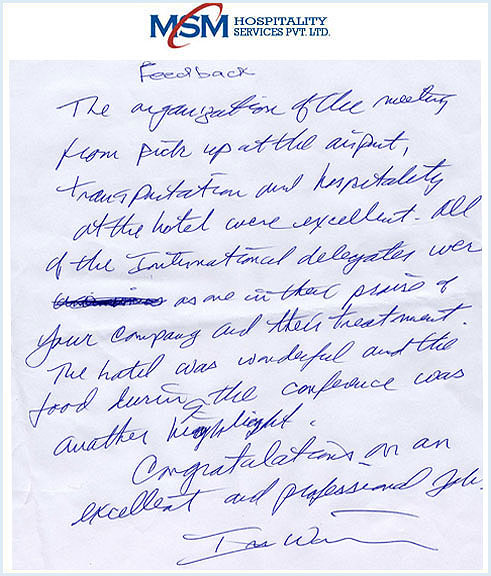 MSM HOSPITALITY
SERVICES PVT. LTD.
Feedback
The organization of the meeting
from pick up at the airport,
transportation and hospitality
at the hotel were excellent. All
of the International delegates wer
as one in their praise of
your company and their treatment.
The hotel was wonderful and the
food during the conference was
another highlight.
Congratulations on an
excellent and professional job.